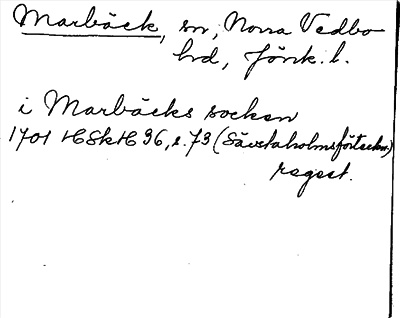 Marbäck, sn, Norra Vedbo
hd, Jönk. l.
i Marbäcks socken
1701 HSkH 36, s. 73 (Sävstaholmsförteckn.)
regest.